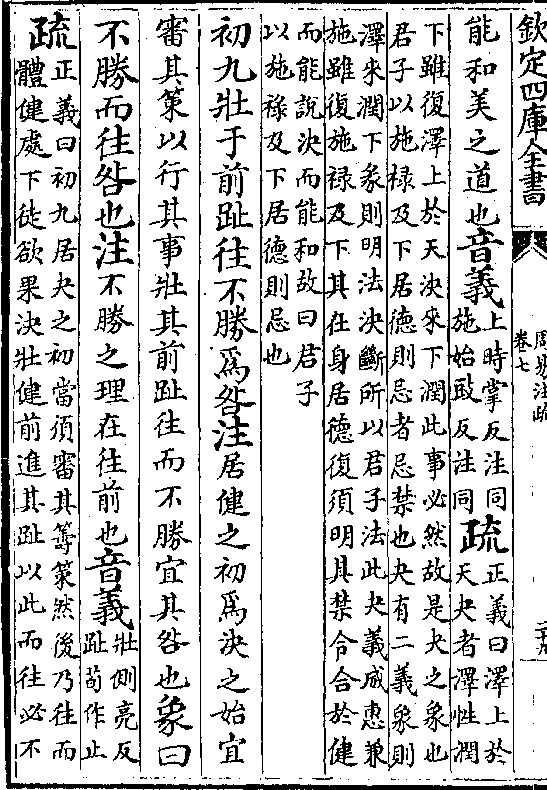 欽定四庫全書
周易注疏
卷七
二十九
能和美之道也音義
上時掌反注同
施始豉反注同
疏
正義曰澤上於
天夬者澤性潤
下雖復澤上於天決來下潤此事必然故是夬之象也
君子以施祿及下居德則忌者忌禁也夬有二義象則
澤來潤下彖則明法決斷所以君子法此夬義威惠兼
施雖復施禄及下其在身居德復須明其禁令合於健
而能說決而能和故曰君子
以施祿及下居德則忌也
初九壯于前趾往不勝爲咎注居健之初爲決之始宜
審其策以行其事壯其前趾往而不勝宜其咎也象曰
不勝而往咎也注不勝之理在往前也音義
壯側亮反
趾荀作止
疏
正義曰初九居夬之初當須審其籌策然後乃往而
體健處下徒欲果決壯健前進其趾以此而往必不